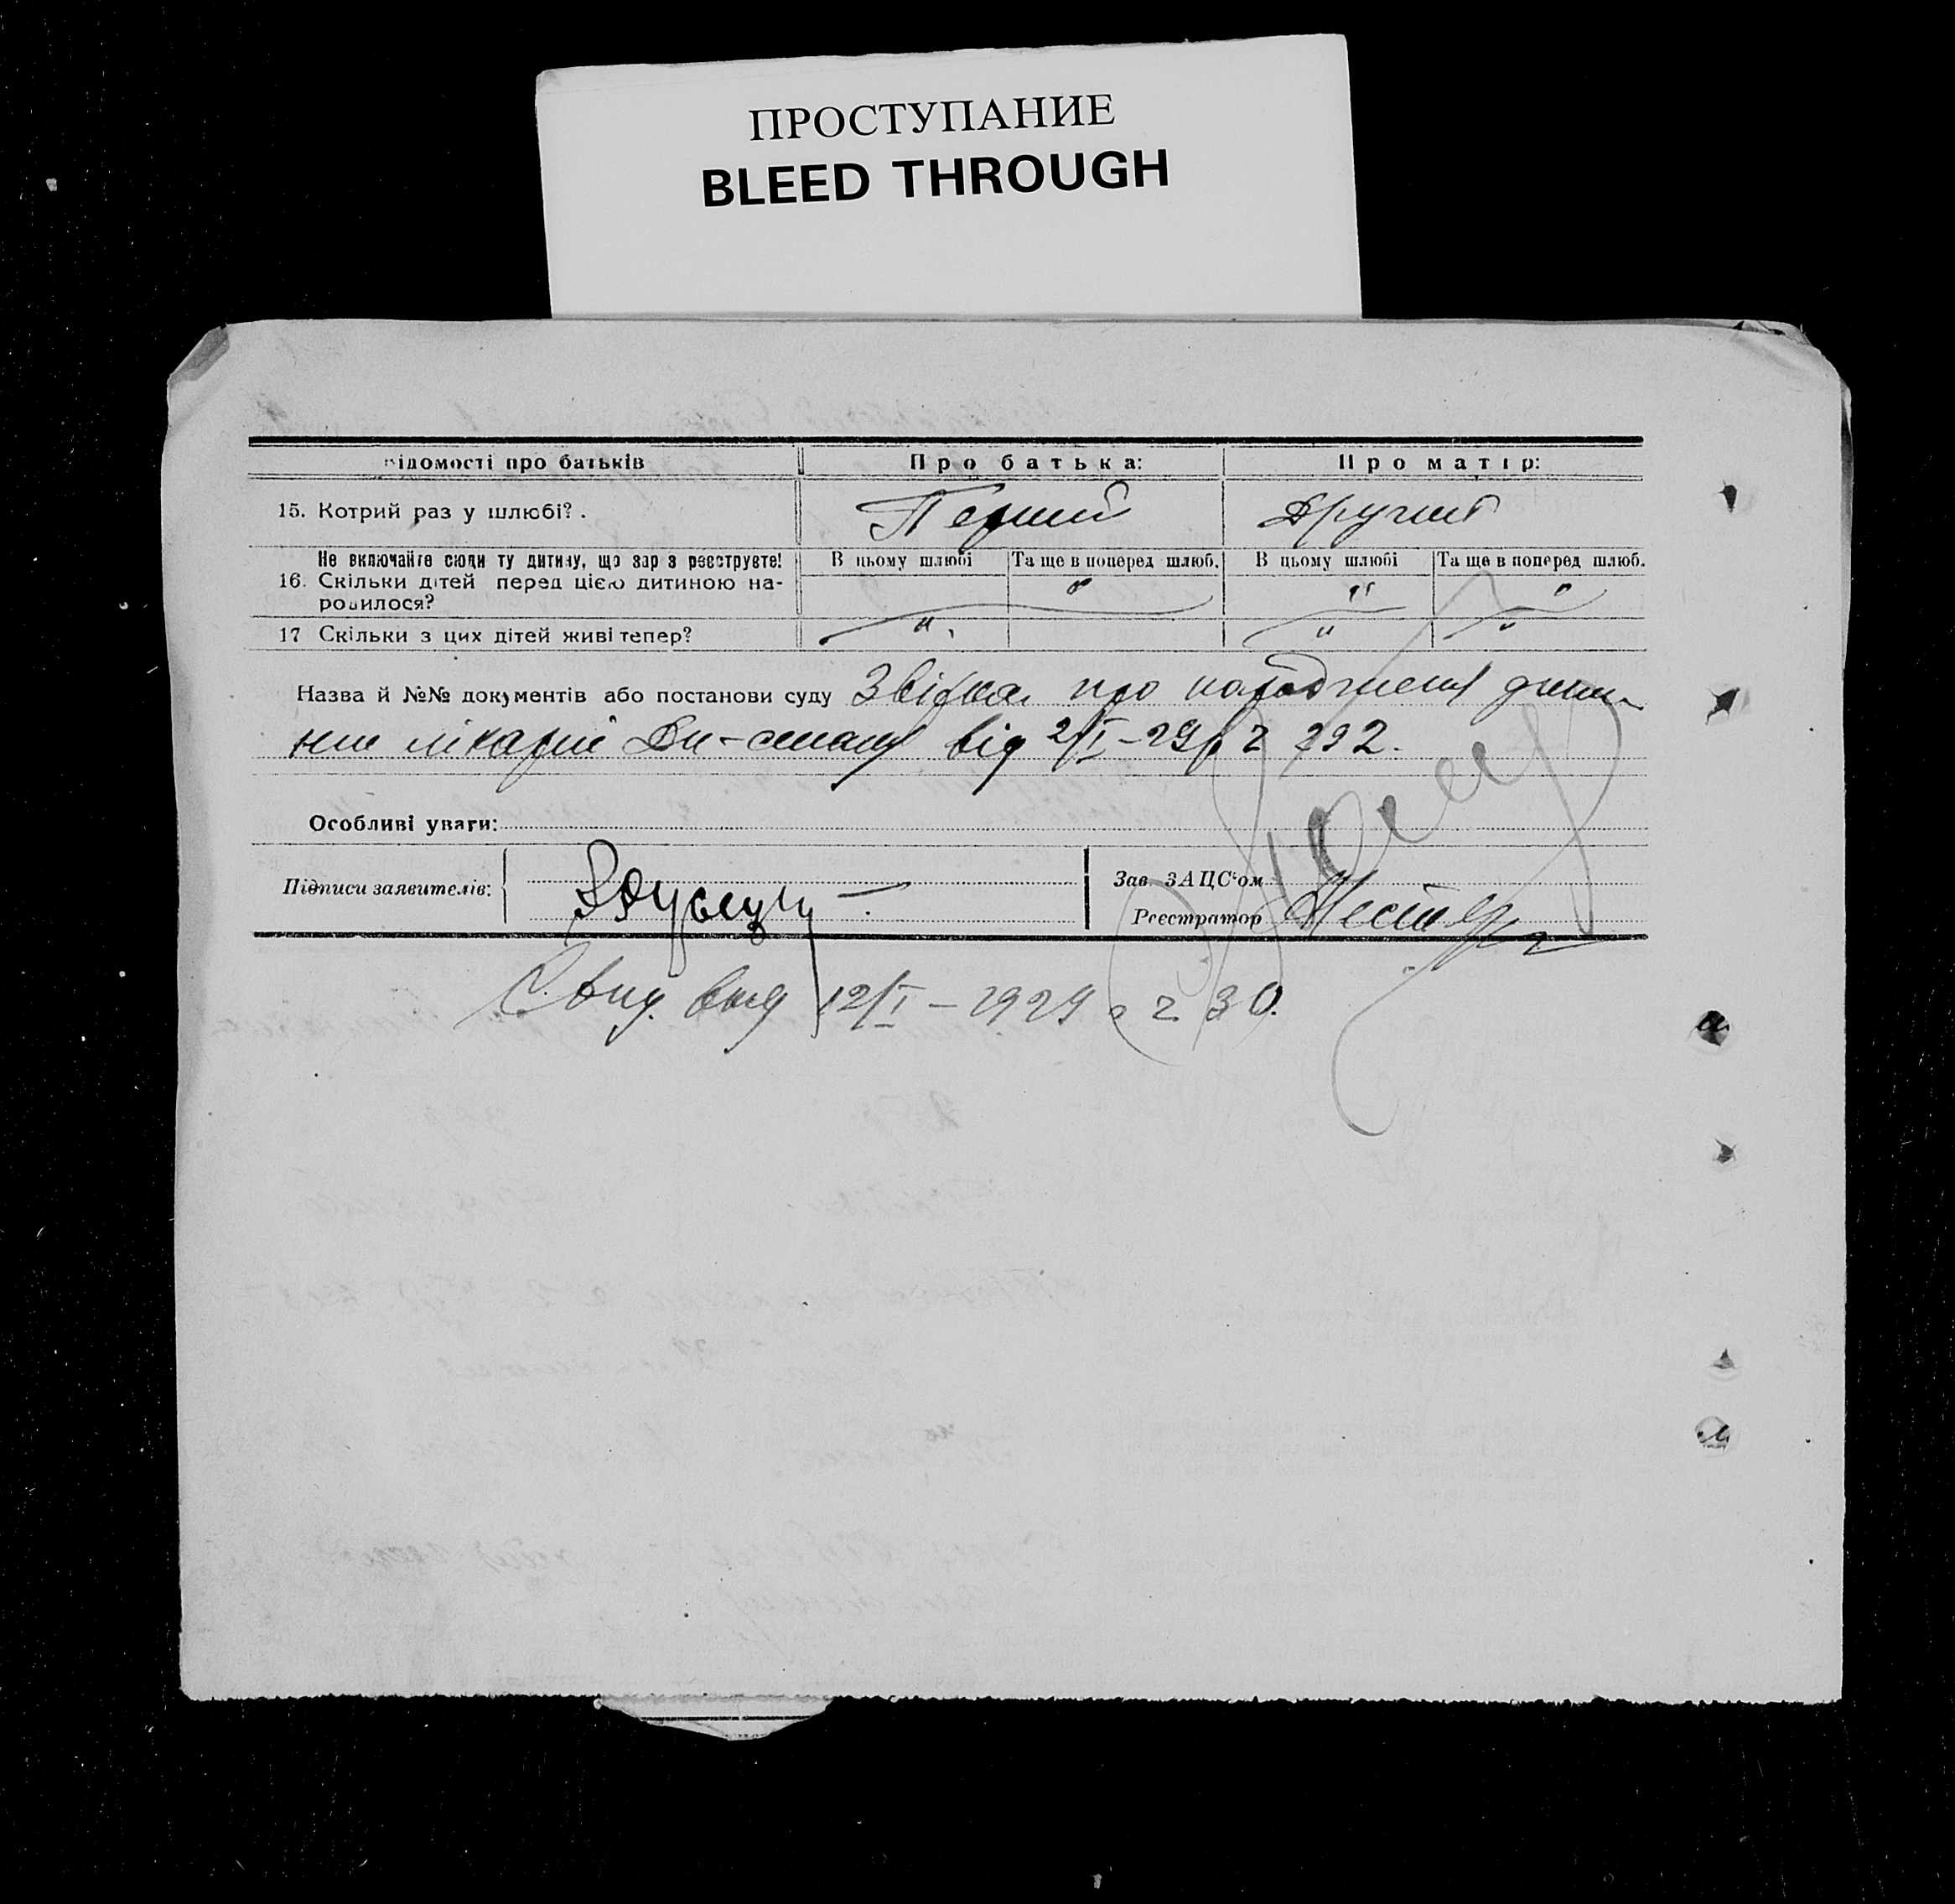 ПРОСТУПАНИЕ
BLEED THROUGH
відомості про батьків Про батька: Про матір:
15. Котрий раз у шлюбі?. Перший Другий
Не включайте сюди ту дитину, що зар з реєструєте! В цьому шлюбі Та ще в поперед шлюб. В цьому шлюбі Та ще в поперед шлюб.
16. Скільки дітей перед цією дитиною на- " " "
родилося?
17 Скільки з цих дітей живі тепер? " " "
Назва й №№ документів або постанови суду Звістка про народження
лікарні від 2/I-29 р. 792.
Особливі уваги:
Підписи заявителів:
Зав. ЗАЦС'ом
Реєстратор
Свид. выд 12/I – 1929 30.